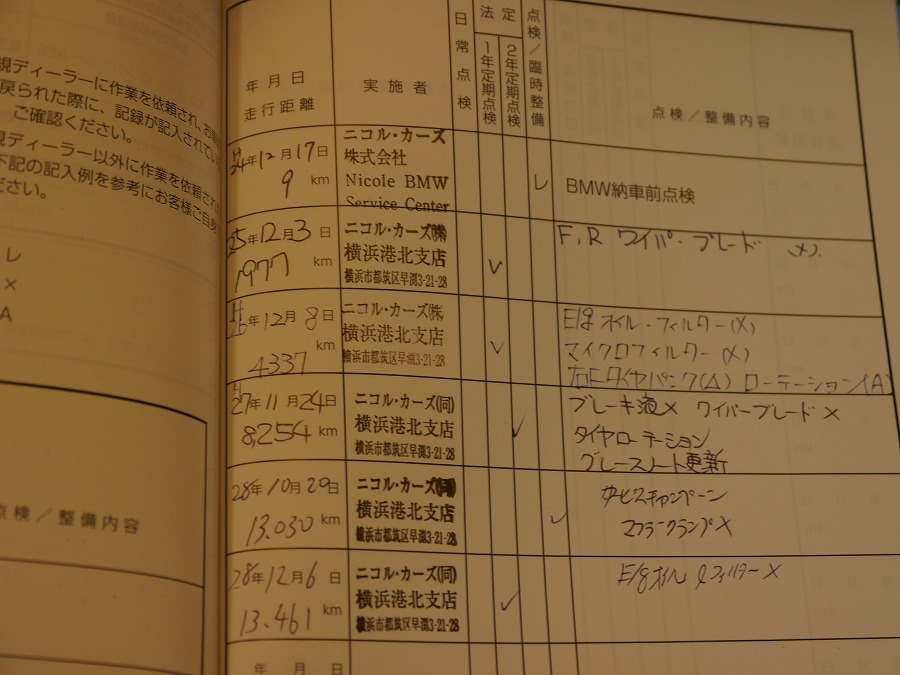 規ディーラーに作業を依頼され、お
戻られた際に、記録が記入されてい
ご確認ください。
規ディーラー以外に作業を依頼され
下記の記入例を参考にお客様ご自
ださい。
レ
×
A
点検／整備内容
年月日
走行距離
実施者
日常点検
法定
1年定期点検
2年定期点検
点検／臨時整備
点検／整備内容
H24年12月17日
9 km
ニコル・カーズ
株式会社
Nicole BMW
Service Center
レ
BMW納車前点検
25年12月3日
1977 km
ニコル・カーズ㈱
横浜港北支店
横浜市都筑区早渕3-21-28
✓
F,R ワイパーブレード
H26年12月8日
4337 km
ニコル・カーズ㈱
横浜港北支店
横浜市都筑区早渕3-21-28
✓
E/g オイル・フィルター(×)
マイクロフィルター(×)
タイヤパンク(△) ローテーション(A)
H27年11月24日
8,254 km
ニコル・カーズ(同)
横浜港北支店
横浜市都筑区早渕3-21-28
✓
ブレーキ液× ワイパーブレード×
タイヤローテーション
グレースノート更新
28年10月20日
13.030 km
ニコル・カーズ(同)
横浜港北支店
横浜市都筑区早渕3-21-28
✓
サービスキャンペーン
マフラークランプ×
28年12月6日
13.461 km
ニコル・カーズ(同)
横浜港北支店
横浜市都筑区早渕3-21-28
✓
E/gオイル フィルター×
年月日